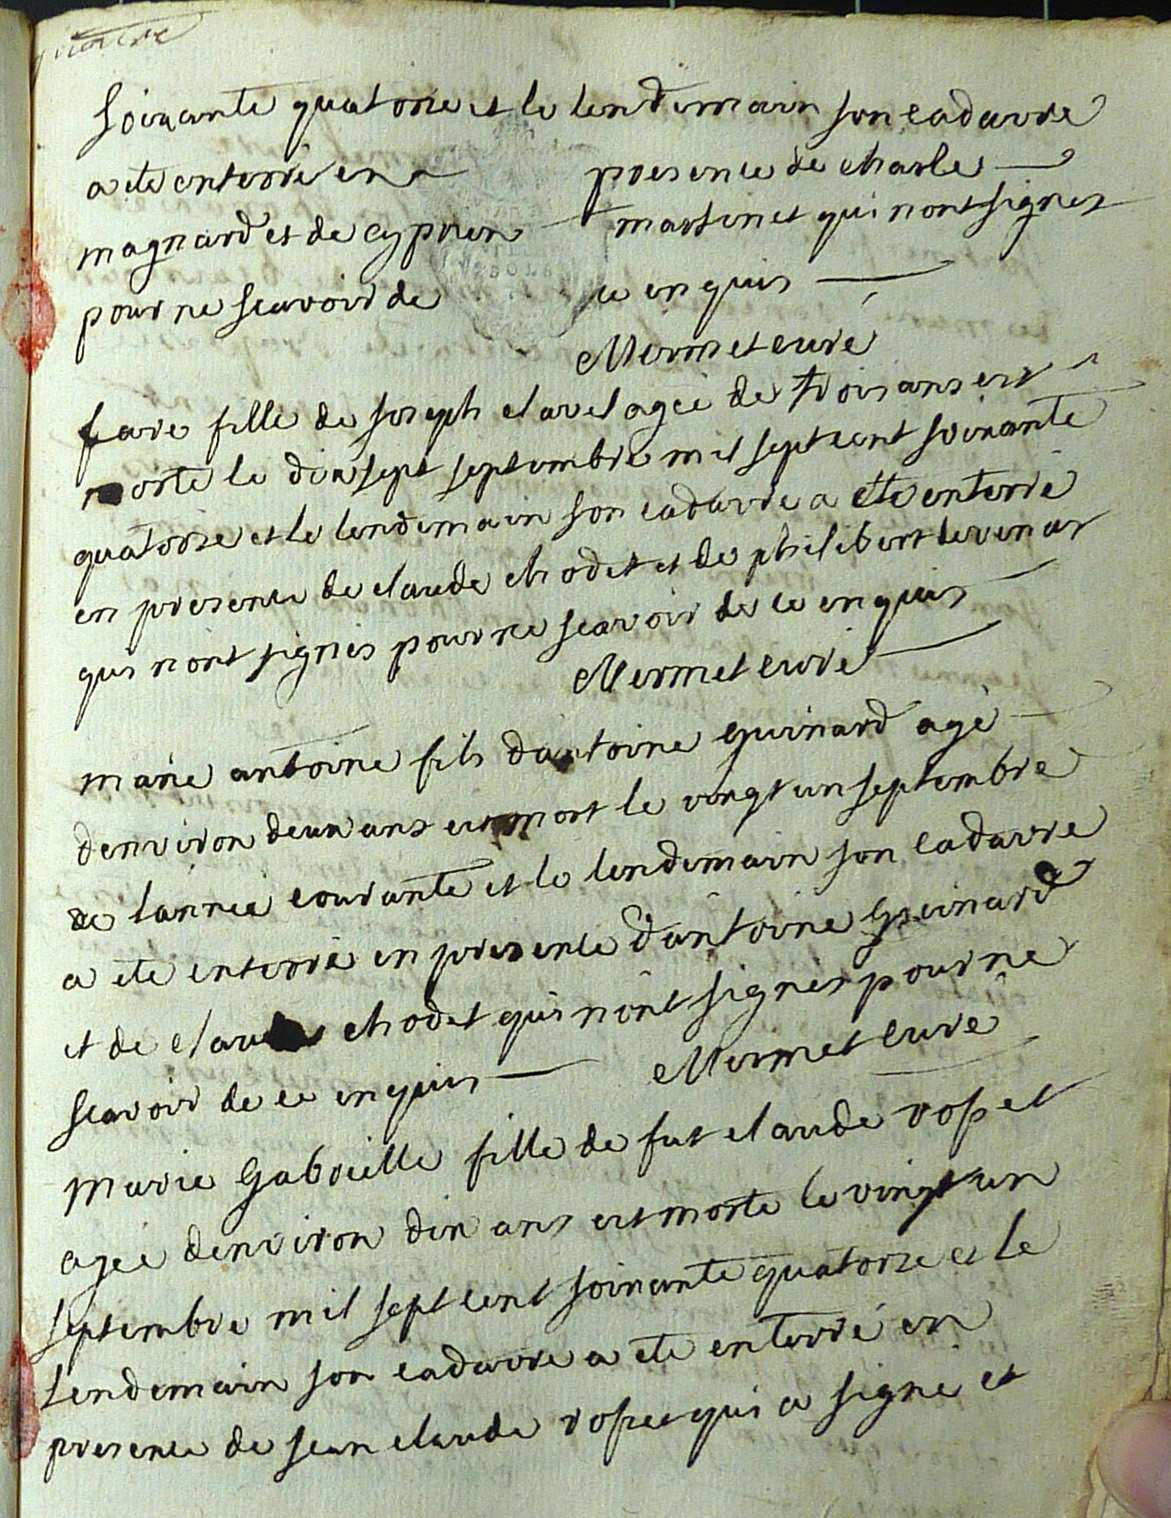 quatre
soixante quatorze et le lendemain son cadavre
a ete enterré en presence de charle
magnard et de cyprien martinet qui n'ont signés
pour ne scavoir de ce enquis
Mermet curé
fille de joseph clavel agée de trois ans est
morte le dix sept septembre mil sept cent soixante
quatorze et le lendemain son cadavre a ete enterré
en presence de claude chodet et de philibert
qui n'ont signés pour ne scavoir de ce enquis
Mermet curé
marie antoine fils d'antoine guinard agé
denviron deux ans est mort le vingt un septembre
de lannée courante et le lendemain son cadavre
a ete enterré en presence d'antoine guinard
et de claude chodet qui n'ont signés pour ne
scavoir de ce enquis Mermet curé
marie gabrielle fille de fut claude rosset
agée denviron dix ans est morte le vingt un
septembre mil sept cent soixante quatorze et le
lendemain son cadavre a ete enterré en
presence de jean claude rosset qui a signé et